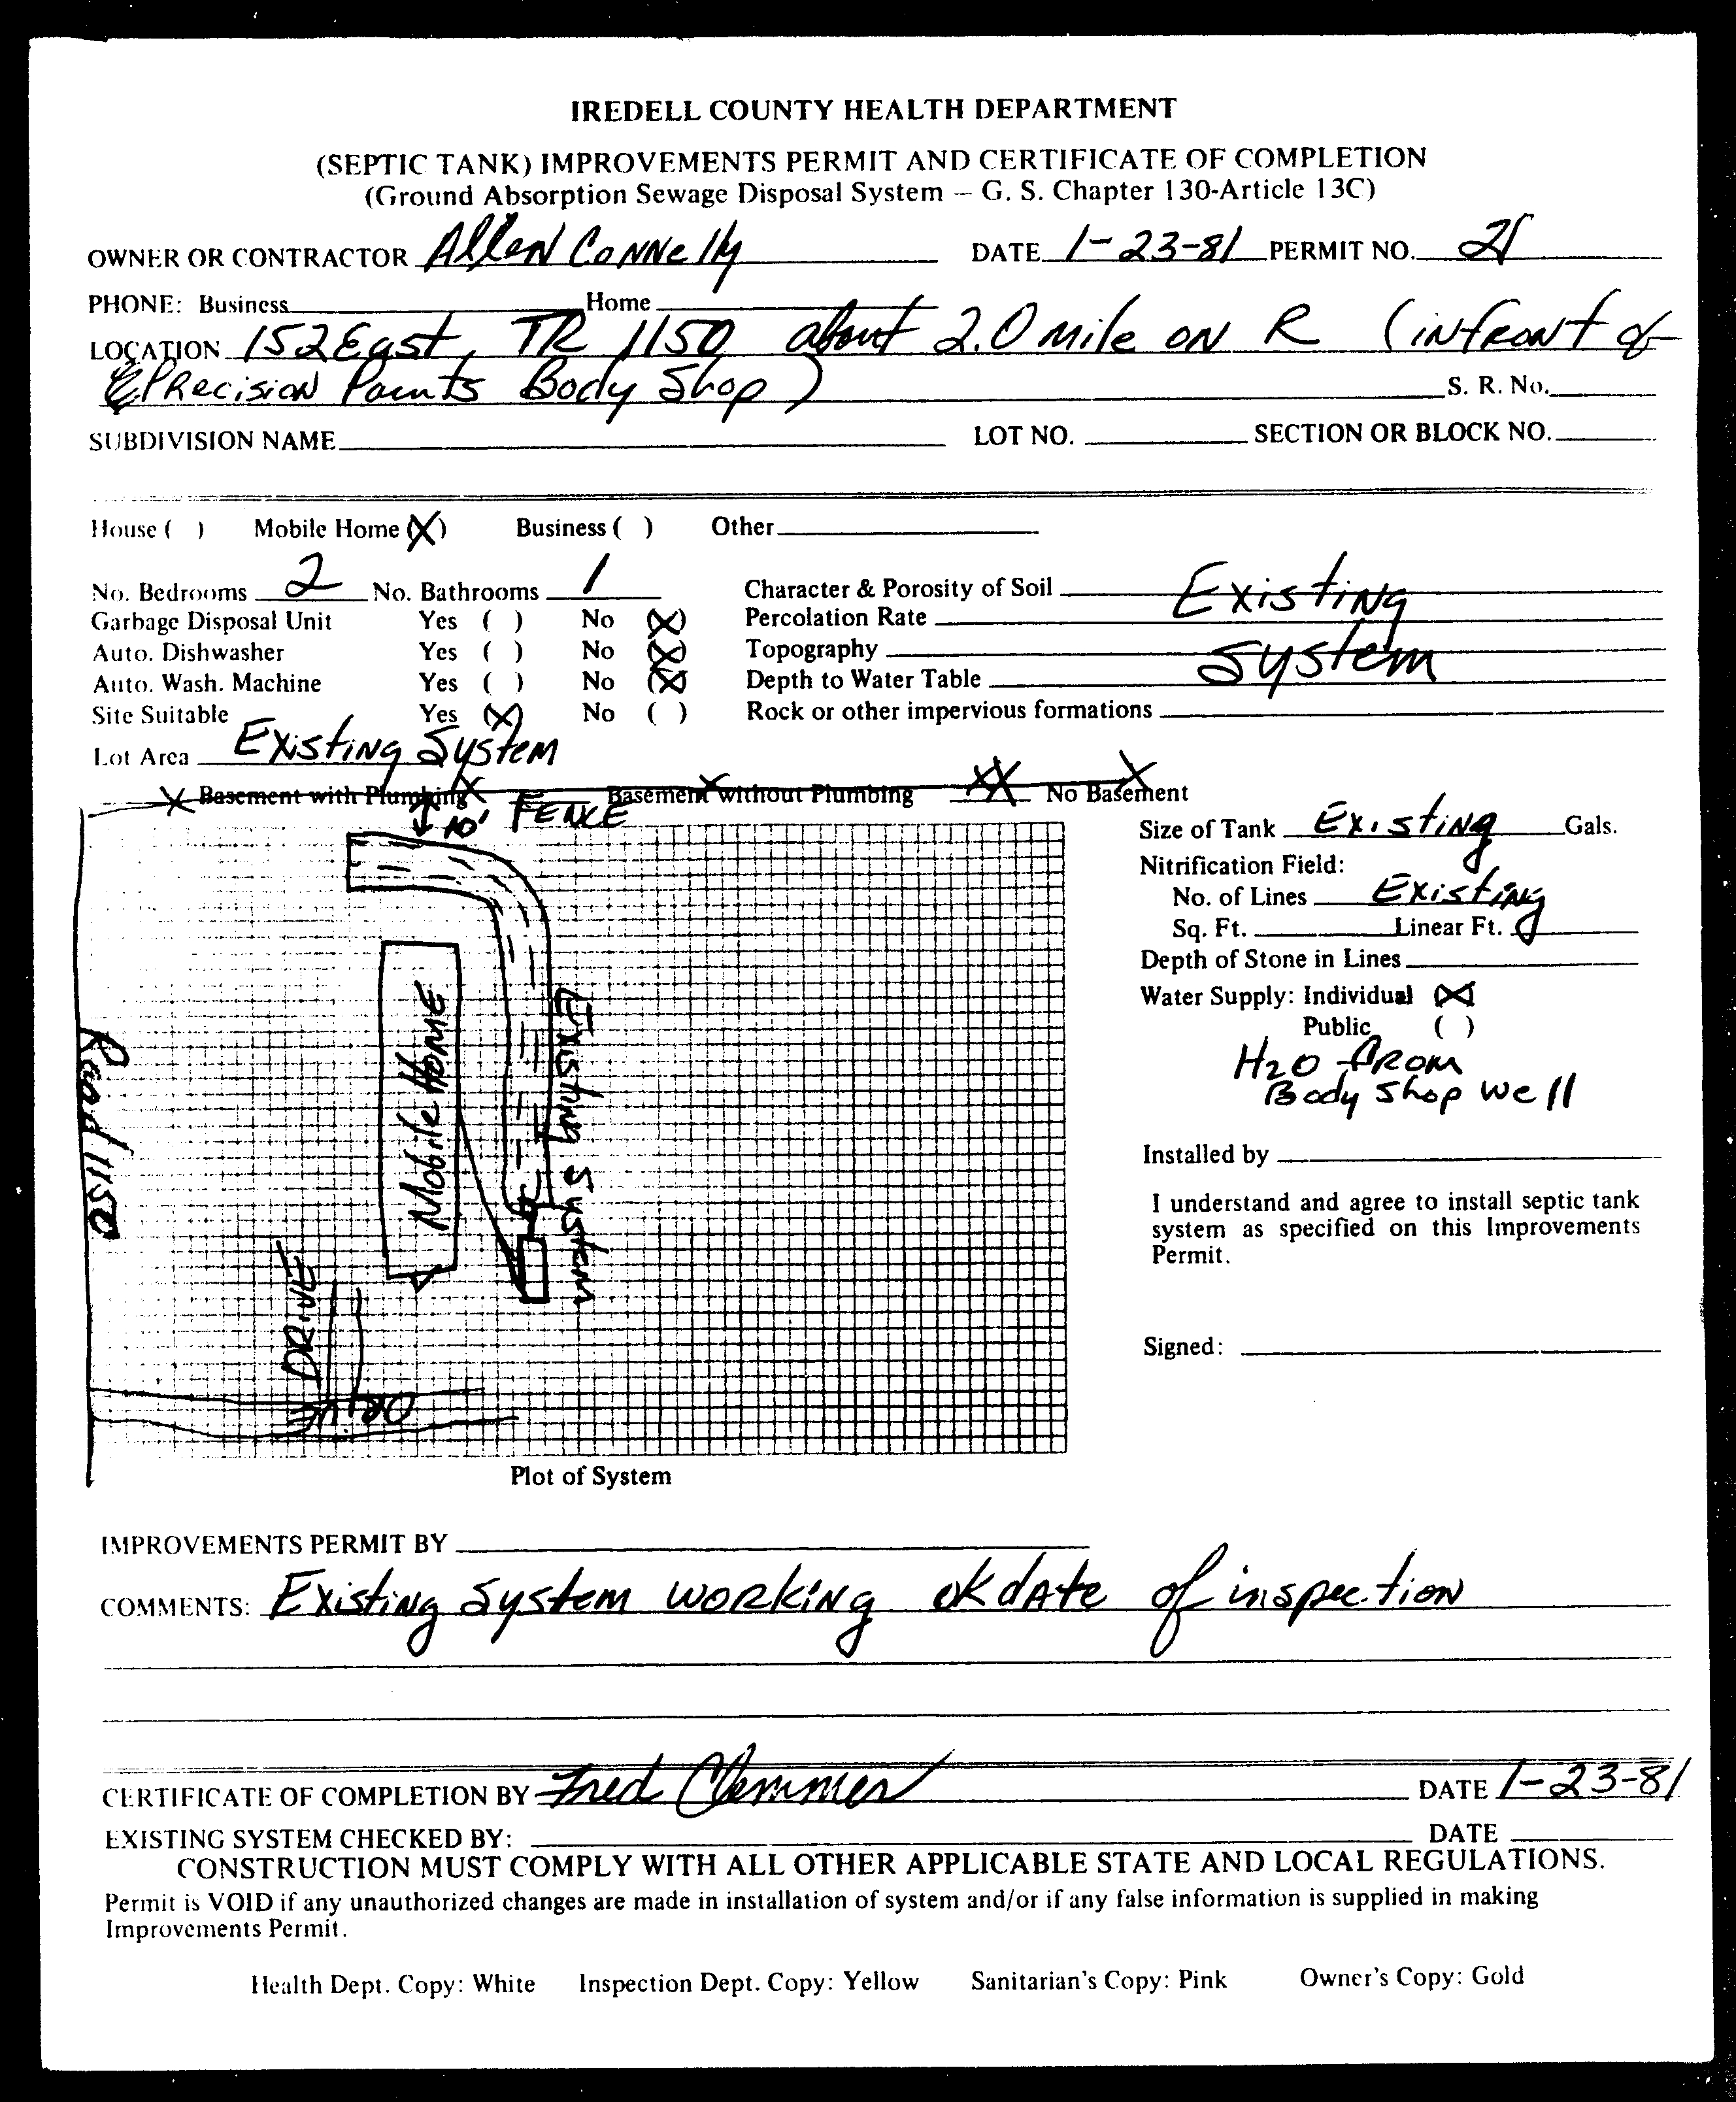 IREDELL COUNTY HEALTH DEPARTMENT
(SEPTIC TANK) IMPROVEMENTS PERMIT AND CERTIFICATE OF COMPLETION
(Ground Absorption Sewage Disposal System — G. S. Chapter 130-Article 13C)
OWNER OR CONTRACTOR Allen Connelly DATE 1-23-81 PERMIT NO.
PHONE: Business Home
LOCATION 152 East, TR 1150 about 2.0 mile on R (infront of
Precision Paints Body Shop) S. R. No.
SUBDIVISION NAME LOT NO. SECTION OR BLOCK NO.
House ( ) Mobile Home (X) Business ( ) Other
No. Bedrooms 2 No. Bathrooms 1 Character & Porosity of Soil Existing
Garbage Disposal Unit Yes ( ) No (X) Percolation Rate
Auto. Dishwasher Yes ( ) No (X) Topography System
Auto. Wash. Machine Yes ( ) No (X) Depth to Water Table
Site Suitable Yes (X) No ( ) Rock or other impervious formations
Lot Area Existing System
Basement with Plumbing Basement without Plumbing XX No Basement
10' FENCE
Size of Tank Existing Gals.
Nitrification Field:
No. of Lines Existing
Sq. Ft. Linear Ft.
Depth of Stone in Lines
Water Supply: Individual (X)
Public ( )
H2O from
Body Shop well
Road 1150
Mobile Home
Existing System
DRIVE
DRIVE
Installed by
I understand and agree to install septic tank
system as specified on this Improvements
Permit.
Signed:
Plot of System
IMPROVEMENTS PERMIT BY
COMMENTS: Existing System working ok date of inspection
CERTIFICATE OF COMPLETION BY Fred Clemmer DATE 1-23-81
EXISTING SYSTEM CHECKED BY: DATE
CONSTRUCTION MUST COMPLY WITH ALL OTHER APPLICABLE STATE AND LOCAL REGULATIONS.
Permit is VOID if any unauthorized changes are made in installation of system and/or if any false information is supplied in making
Improvements Permit.
Health Dept. Copy: White Inspection Dept. Copy: Yellow Sanitarian's Copy: Pink Owner's Copy: Gold